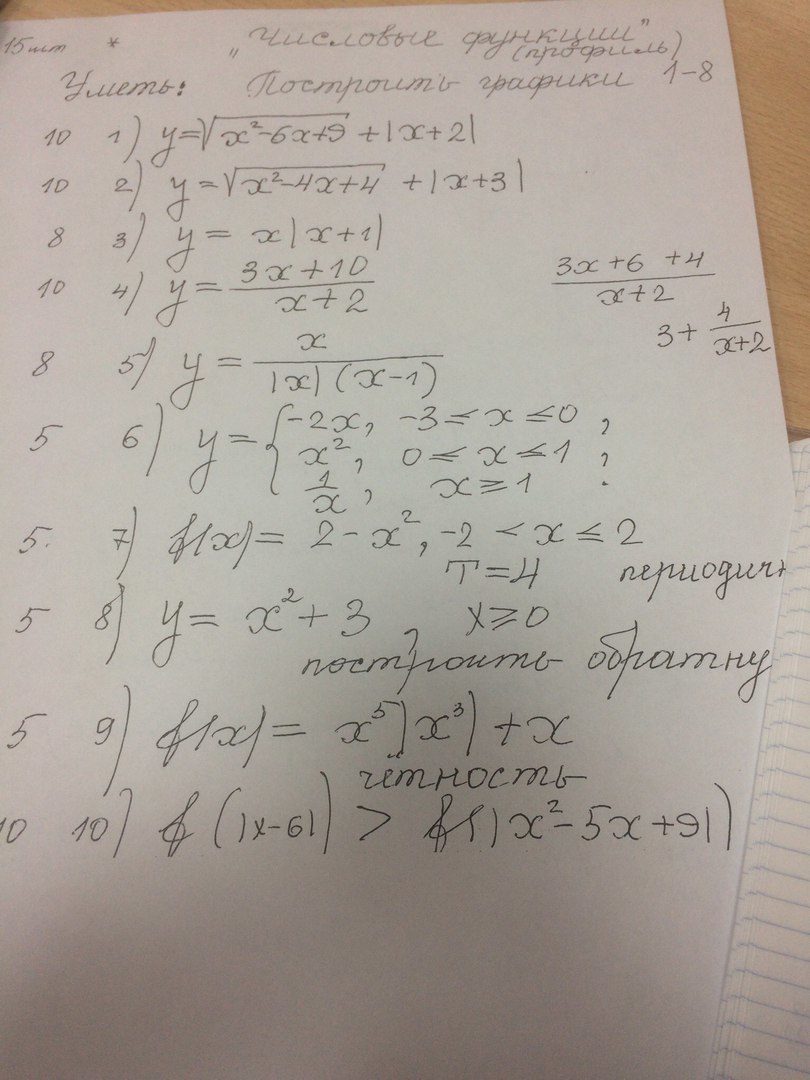 15шт * „Числовые функции"
(профиль)
Уметь: Построить графики 1-8
10 1) y=√(x²-6x+9) + |x+2|
10 2) y=√(x²-4x+4) + |x+3|
8 3) y= x|x+1|
10 4) y= (3x+10)/(x+2)
(3x+6+4)/(x+2)
3+ 4/(x+2)
8 5) y= x/(|x|(x-1))
5 6) y= { -2x, -3≤x≤0,
x², 0≤x≤1,
1/x, x≥1.
5. 7) f(x)= 2-x², -2<x≤2
T=4 периодич
5 8) y= x²+3, x≥0
построить обратну
5 9) f(x)= x⁵|x³|+x
чётность
10 10) f(|x-6|) > f(|x²-5x+9|)